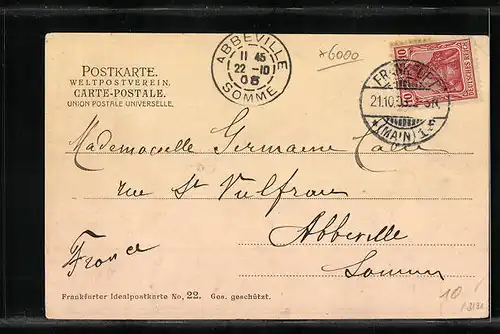 POSTKARTE.
WELTPOSTVEREIN.
CARTE-POSTALE.
UNION POSTALE UNIVERSELLE.
ABBEVILLE
11 45
22 -10
05
SOMME
*6000
10
DEUTSCHES REICH
21.10.05
*(MAIN)1.
Mademoiselle Germaine
rue St Vulfran
Abbeville
France
Somme
Frankfurter Idealpostkarte No. 22. Ges. geschützt.
10